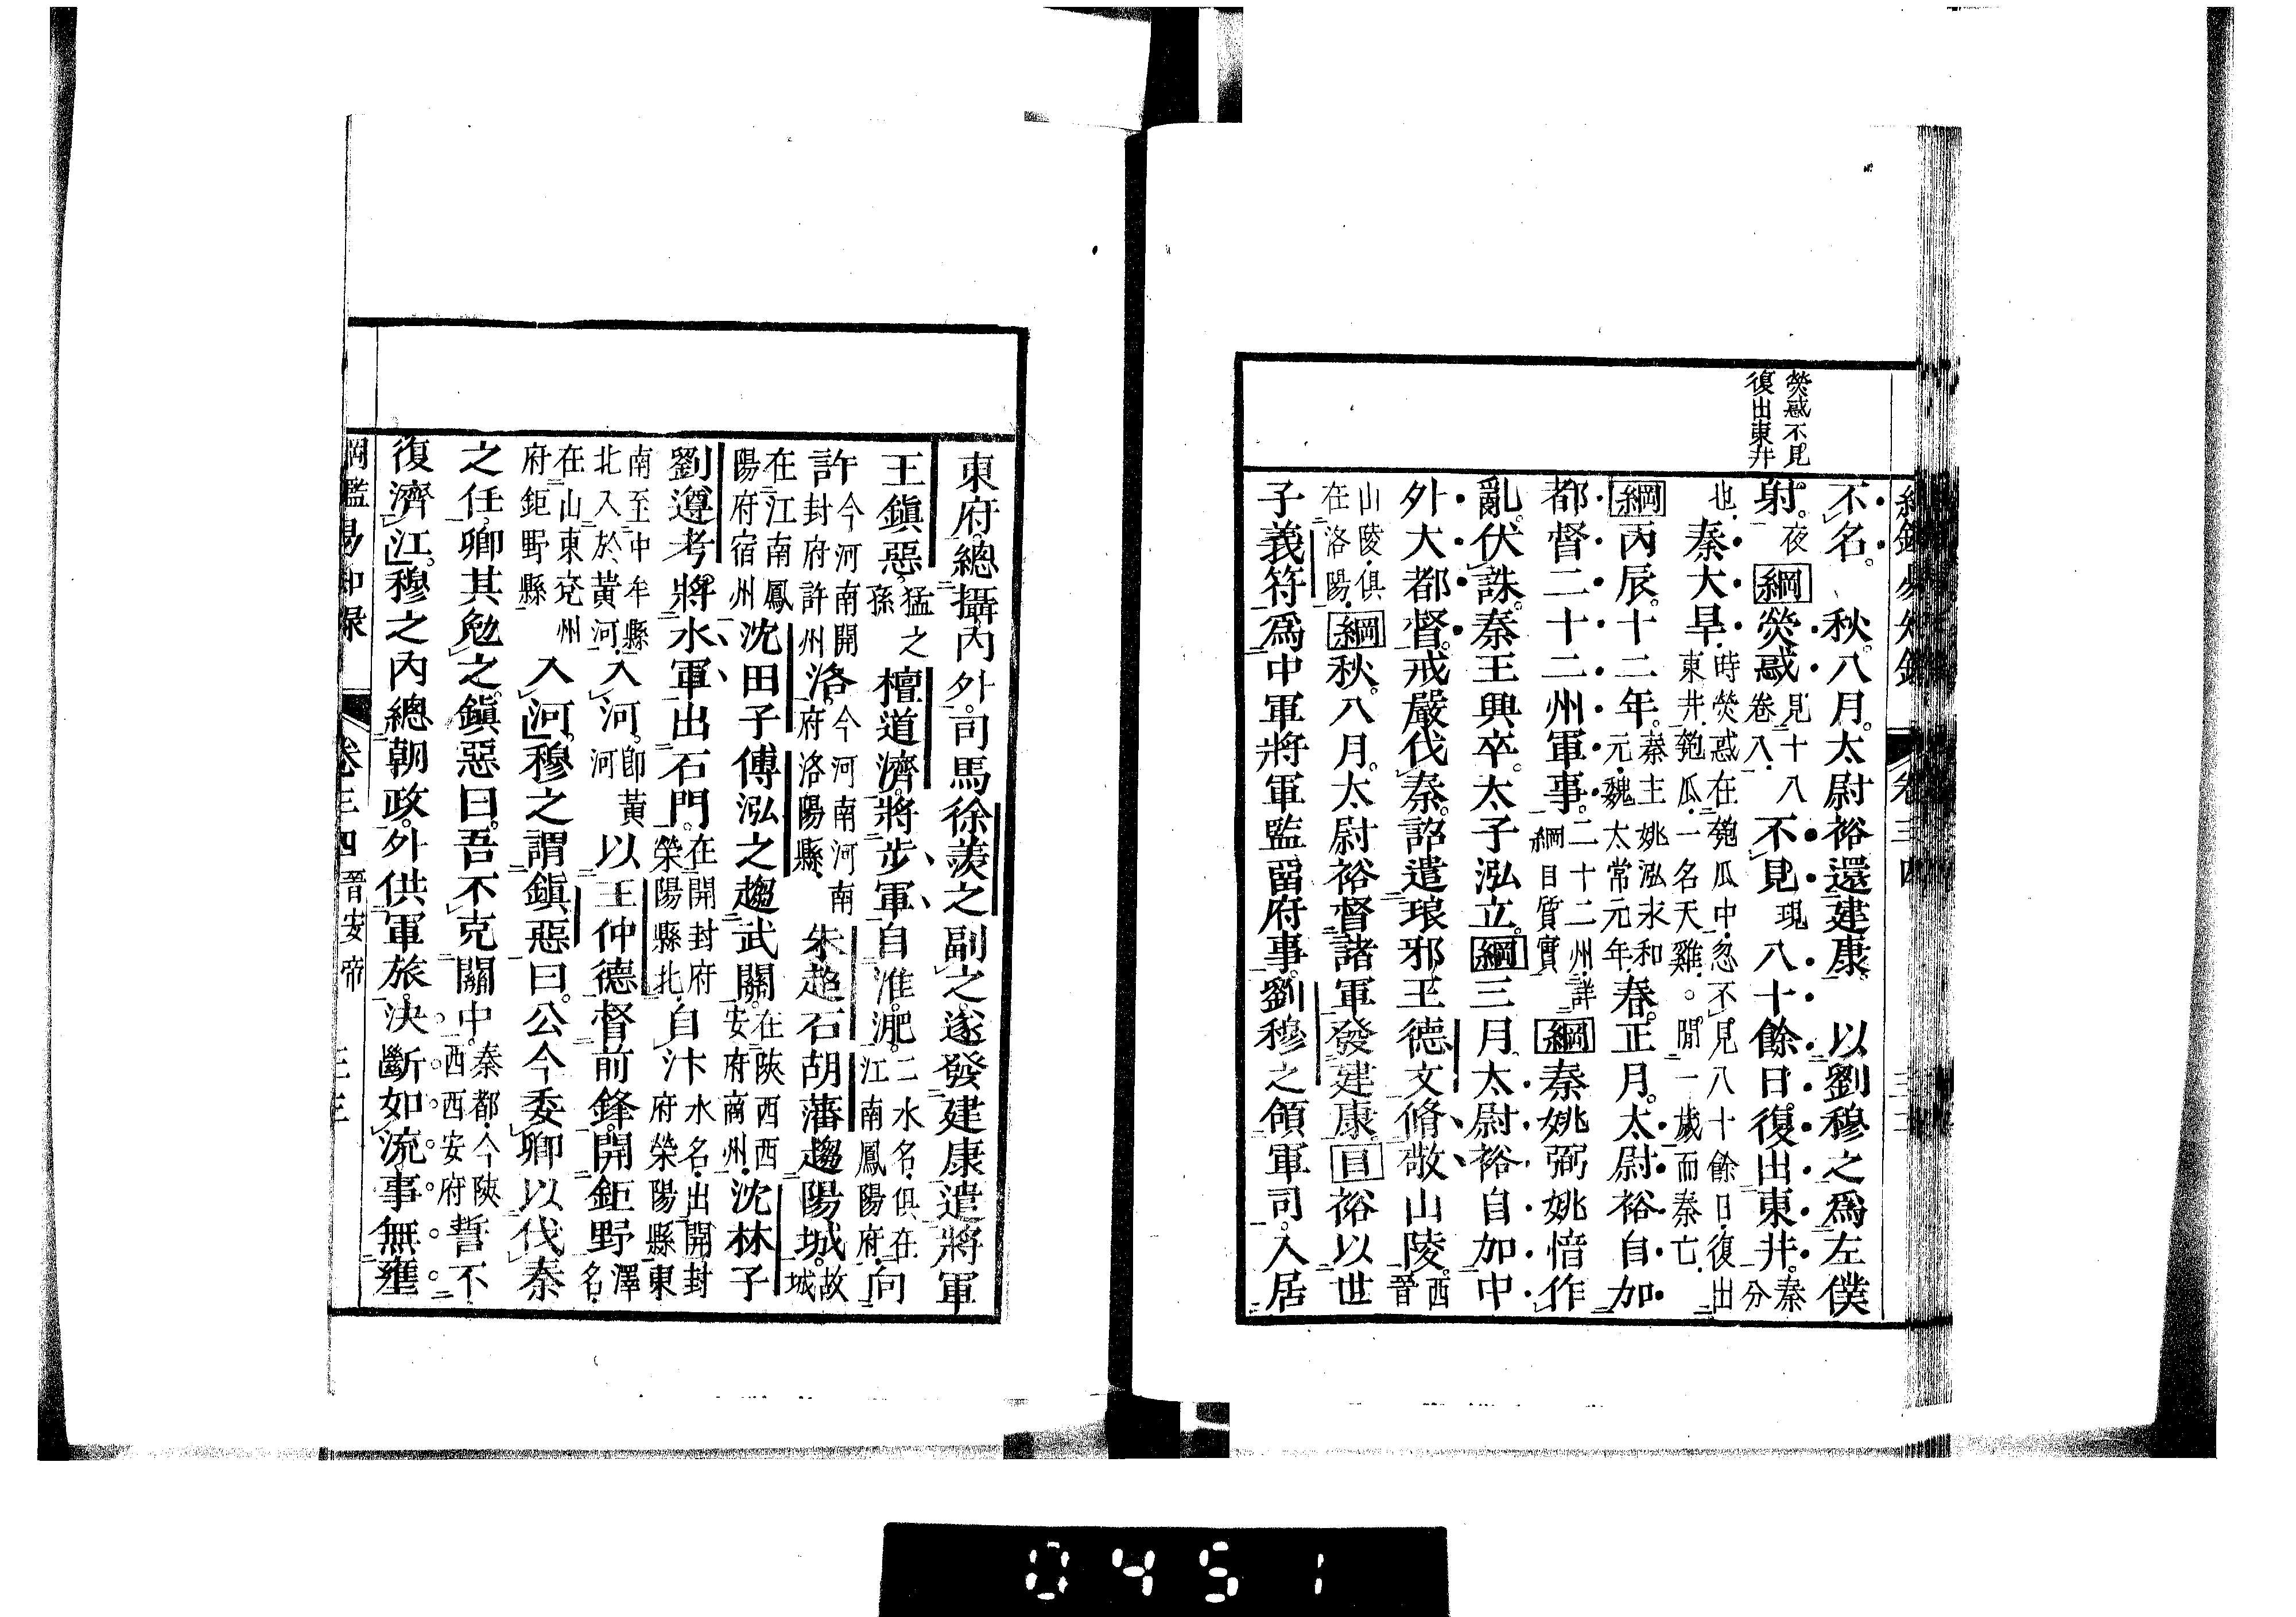 熒惑不見
復出東井
不名。秋。八月。太尉裕還建康。以劉穆之爲左僕
射。夜綱熒惑見十八卷八不見現八十餘日。復出東井。秦分
也。秦大旱。時熒惑在匏瓜中。忽不見八十餘日。復出東井。匏瓜。一名天雞。○閒一歲而秦亡。
綱丙辰。十二年。秦主姚泓永和元。魏太常元年。春。正月。太尉裕自加
都督二十二州軍事。二十二州。詳綱目質實綱秦姚弼姚愔作
亂。伏誅。秦王興卒。太子泓立。綱三月太尉裕自加中
外大都督。戒嚴伐秦。詔遣琅邪王德文脩敬山陵。西晉
山陵。俱在洛陽。綱秋。八月。太尉裕督諸軍發建康。目裕以世
子義符爲中軍將軍監留府事。劉穆之領軍司。入居
東府。總攝內外。司馬徐羨之副之。遂發建康。遣將軍
王鎭惡。猛之孫檀道濟。將步軍自淮。淝。二水名。俱在江南鳳陽府。向
許今河南開封府許州洛。今河南河南府洛陽縣。朱超石胡藩趨陽城。故城
在江南鳳陽府宿州沈田子傅泓之趨武關。在陝西西安府商州。沈林子
劉遵考。將水軍出石門。在開封府滎陽縣北。自汴水名。出開封府滎陽縣東
南至中牟縣北入於黃河。入河。卽黃河以王仲德督前鋒。開鉅野澤名。
在山東兗州府鉅野縣入河。穆之謂鎭惡曰。公今委卿以伐秦
之任。卿其勉之。鎭惡曰。吾不克關中。秦都。今陝西西安府誓不
復濟江。穆之內總朝政。外供軍旅。決斷如流。事無壅
綱鑑易知錄 卷三四 晉安帝